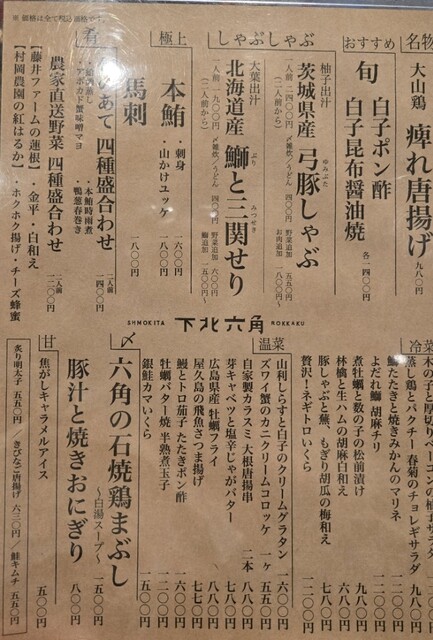 ※価格は全て税込価格です。
名物
大山鶏 痺れ唐揚げ 九八〇〜
おすすめ
旬 白子ポン酢
白子昆布醤油焼
各一四〇〇〜
しゃぶしゃぶ
柚子出汁
茨城県産 弓豚しゃぶ
ゆみぶた
一人前 二四〇〇〜
(二人前から)
〆雑炊/うどん 四〇〇〜
野菜追加 五五〇〜
お肉追加 一八〇〇〜
大葉出汁
北海道産 鰤と三関せり
ぶり
みつせき
一人前 一九〇〇〜
(二人前から)
〆雑炊/うどん 四〇〇〜
野菜追加 六〇〇〜
鰤追加 一五〇〇〜
極上
本鮪
・刺身 一六〇〇〜
・山かけユッケ 一八〇〇〜
馬刺 一八〇〇〜
肴
あて 四種盛合わせ
・アボカド蟹味噌マヨ
・本鮪時雨煮
・鴨葱春巻き
二人前 一四〇〇〜
農家直送野菜 四種盛合わせ
二人前 一二〇〇〜
【藤井ファームの蓮根】・金平・白和え
【村岡農園の紅はるか】・ホクホク揚げ・チーズ蜂蜜
SHMOKITA 下北六角 ROKKAKU
冷菜
木の子と厚切りベーコンの柚子サラダ
蒸し鶏とパクチー 春菊のチョレギサラダ
鰹たたきと焼きみかんのマリネ
よだれ鰤 胡麻チリ
煮牡蠣と数の子の松前漬け
林檎と生ハムの胡麻白和え
豚しゃぶと蕪、もぎり胡瓜の梅和え
贅沢!ネギトロいくら
温菜
山利しらすと白子のクリームグラタン 一六〇〇〜
ズワイ蟹のカニクリームコロッケ 一ヶ 五五〇〜
自家製カラスミ 大根唐揚串 二本
芽キャベツと塩辛じゃがバター
広島県産 牡蠣フライ
屋久島の飛魚さつま揚げ
鰻とトロ茄子 たたきポン酢
牡蠣バター焼 半熟煮玉子
銀鮭カマいくら
〆
六角の石焼鶏まぶし
〜白湯スープ〜
一五〇〇〜
豚汁と焼きおにぎり 八〇〇〜
甘
焦がしキャラメルアイス 五〇〇〜
炙り明太子 五五〇〜/きびなご唐揚げ 六三〇〜/鮭キムチ 五五〇〜